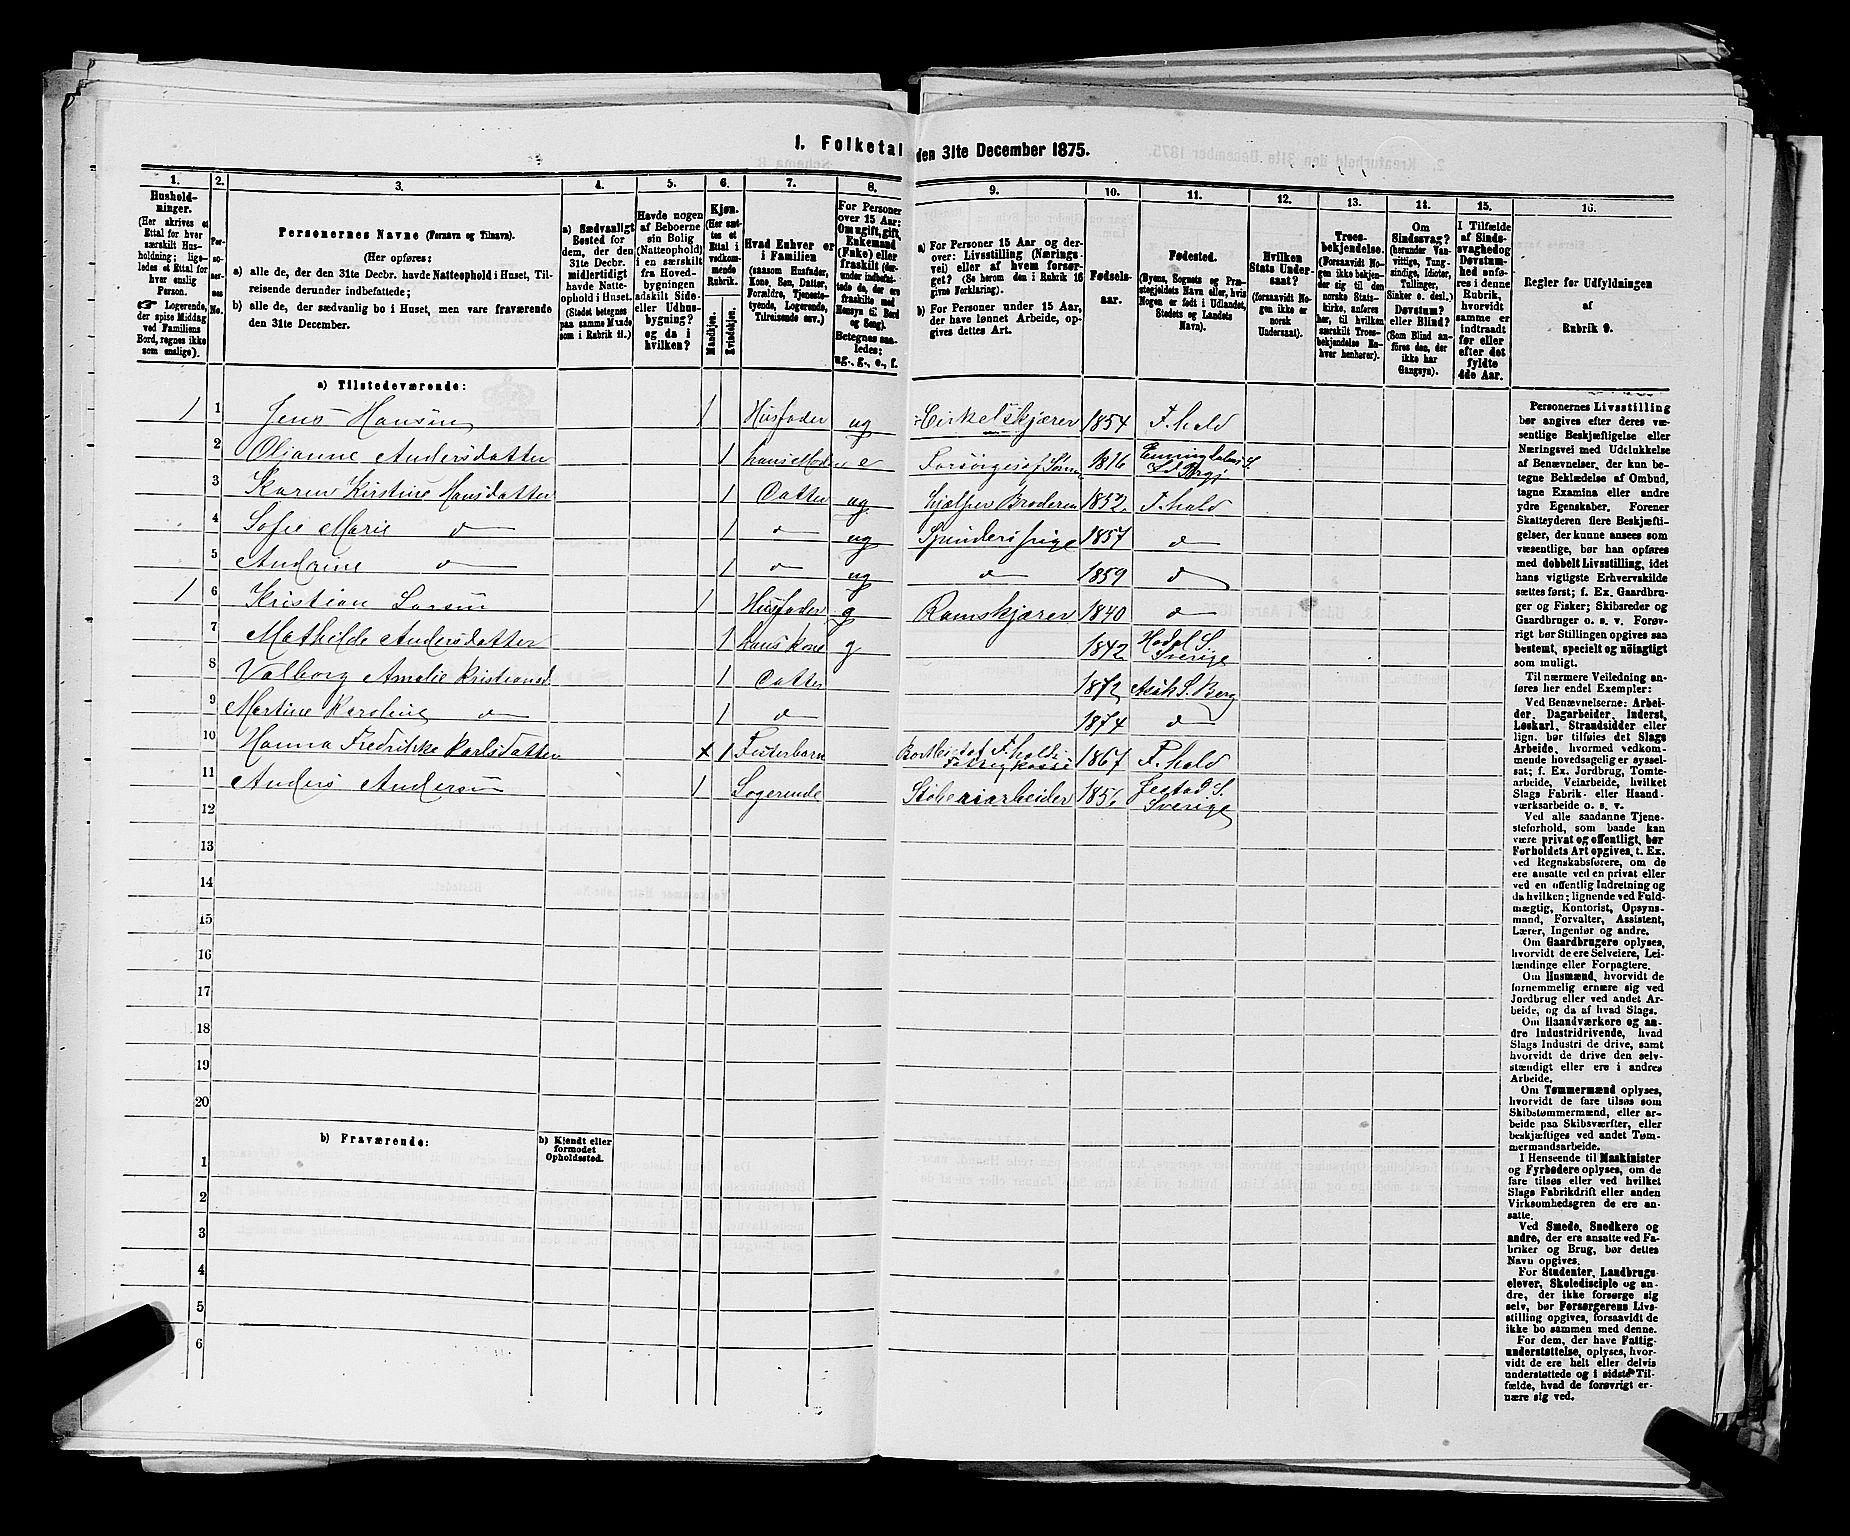 1. Folketal den 31te December 1875.
1. 2. 3. 4. 5. 6. 7. 8. 9. 10. 11. 12. 13. 14. 15. 16.
Hushold-
ninger.
(Her skrives et
Ettal for hver
særskilt Hus-
holdning; lige-
ledes et Ettal for
hver enslig
Person.
Logerende,
der spise Middag
ved Familiens
Bord, regnes ikke
som enslige).
Per-
so-
ner-
nes
No.
Personernes Navne (Fornavn og Tilnavn).
(Her opføres:
a) alle de, der den 31te Decbr. havde Natteophold i Huset, Til-
reisende derunder indbefattede;
b) alle de, der sædvanlig bo i Huset, men vare fraværende
den 31te December.
a) Sædvanligt
Bosted for
dem, der den
31te Decbr.
midlertidigt
havde Natte-
ophold i Huset.
(Stedet betegnes
paa samme Maade
som i Rubrik 11.)
Havde nogen
af Beboerne
sin Bolig
(Natteophold)
i en særskilt
fra Hoved-
bygningen
adskilt Side-
eller Udhus-
bygning?
og da i
hvilken?
Kjøn.
(Her sæt-
tes et
Ettal i
vedkom-
mende
Rubrik.
Mandkjøn.
Kvindekjøn.
Hvad Enhver er
i Familien
(saasom Husfader,
Kone, Søn, Datter,
Forældre, Tjeneste-
tyende, Logerende,
Tilreisende osv.)
For Personer
over 15 Aar:
Om ugift, gift,
Enkemand
(Enke) eller
fraskilt
Betegnes saa-
ledes:
ug., g., e., f.
a) For Personer 15 Aar og der-
over: Livsstilling (Nærings-
vei) eller af hvem forsør-
get? (Se herom den i Rubrik 16
givne Forklaring).
b) For Personer under 15 Aar,
der have lønnet Arbeide, op-
gives dettes Art.
Fødsels-
aar.
Fødested.
(Byens, Sognets og Præ-
stegjeldets Navn eller, hvis
Nogen er født i Udlandet,
Stedets og Landets
Navn).
Hvilken
Stats Under-
saat?
(forsaavidt No-
gen ikke er
norsk
Undersaat).
Troes-
bekjendelse.
(Forsaavidt No-
gen ikke bekjen-
der sig til den
norske Stats-
kirke, anføres
her, til hvilken
særskilt Troes-
bekjendelse En-
hver henhører).
Om
Sindssvag?
(herunder Van-
vittige, Tung-
sindige, Idioter,
Tullinger,
Sinker o. desl.)
Døvstum?
eller Blind?
(Som Blind an-
føres den, der
ikke har
Gangsyn).
I Tilfælde
af Sinds-
svaghed og
Døvstum-
hed anfø-
res i denne
Rubrik,
hvorvidt
samme er
indtraadt
før eller
efter det
fyldte
4de Aar.
Regler for Udfyldningen
af
Rubrik 9.
a) Tilstedeværende:
1 1 Jens Hansen 1 Husfader ug Cirkelskjærer 1854 F.hald
2 Olianne Andersdatter 1 hans Moder e Forsørges af Sønnen 1816
3 Karen Kirstine Hansdatter 1 Datter ug hjælper Broderen 1852 F.hald
4 Sofie Marie d 1 d ug Spinderipige 1857 d
5 Andrine d 1 d ug d 1859 d
1 6 Kristian Larsen 1 Husfader g Ramskjærer 1840 d
7 Mathilde Andersdatter 1 hans Kone g 1842 Hodal S. Sverige
8 Valborg Amalie Kristiansd 1 Datter 1872 Asak S. Berg
9 Martine Karoline d 1 d 1874 d
10 Hanna Fredrikke Karlsdatter x 1 Fosterbarn Bortleiet af F.halds Fattigkasse 1867 F.hald
11 Anders Andersen 1 Logerende Støberiarbeider 1856 Sverige
12
13
14
15
16
17
18
19
20
b) Fraværende:
b) Kjendt eller
formodet
Opholdssted.
1
2
3
4
5
6
Personernes Livsstilling
bør angives efter deres væ-
sentlige Beskjæftigelse eller
Næringsvei med Udelukkelse
af Benævnelser, der kun be-
tegne Beklædelse af Ombud,
tagne Examina eller andre
ydre Egenskaber. Forener
Skatteyderen flere Beskjæfti-
gelser, der kunne ansees som
væsentlige, bør han opføres
med dobbelt Livsstilling, idet
hans vigtigste Erhvervskilde
sættes først; f. Ex. Gaardbru-
ger og Fisker; Skibsreder og
Gaardbruger o. s. v. Forøv-
rigt bør Stillingen opgives saa
bestemt, specielt og nøiagtigt
som muligt.
Til nærmere Veiledning an-
føres her endel Exempler:
Ved Benævnelserne: Arbei-
der, Dagarbeider, Inderst,
Løskarl, Strandsidder eller
lign. bør tilføies det Slags
Arbeide, hvormed vedkom-
mende hovedsagelig er syssel-
sat; f. Ex. Jordbrug, Tomte-
arbeide, Veiarbeide, hvilket
Slags Fabrik- eller Haand-
værksarbeide o. s. v.
Ved alle saadanne Tjene-
steforhold, som baade kan
være privat og offentligt, bør
Forholdets Art opgives, t. Ex.
ved Regnskabsførere, om de
ere ansatte ved en privat eller
ved en offentlig Indretning og
da hvilken; lignende ved Fuld-
mægtig, Kontorist, Opsyns-
mand, Forvalter, Assistent,
Lærer, Ingeniør og andre.
Om Gaardbrugere oplyses,
hvorvidt de ere Selveiere, Lei-
lændinge eller Forpagtere.
Om Husmænd, hvorvidt de
fornemmelig ernære sig ved
Jordbrug eller ved andet Ar-
beide, og da af hvad Slags.
Om Haandværkere og an-
dre Industridrivende, hvad
Slags Industri de drive, samt
hvorvidt de drive den selv-
stændigt eller ere i andres
Arbeide.
Om Tømmermænd oplyses,
hvorvidt de fare tilsøs som
Skibstømmermænd, eller ar-
beide paa Skibsværfter, eller
beskjæftiges ved andet Tøm-
mermandsarbeide.
I Henseende til Maskinister
og Fyrbødere oplyses, om de
fare tilsøs eller ved hvilket
Slags Fabrikdrift eller anden
Virksomhedsgren de ere an-
satte.
Ved Smede, Snedkere og
andre, der ere ansatte ved Fa-
briker og Brug, bør dettes
Navn opgives.
For Studenter, Landbrugs-
elever, Skoledisciple og an-
dre, der ikke forsørge sig
selv, bør Forsørgerens Livs-
stilling opgives, forsaavidt de
ikke bo sammen med denne.
For dem, der have Fattig-
understøttelse, oplyses, hvor-
vidt de ere helt eller delvis
understøttede og i sidste Til-
fælde, hvad de forøvrigt er-
nære sig ved.